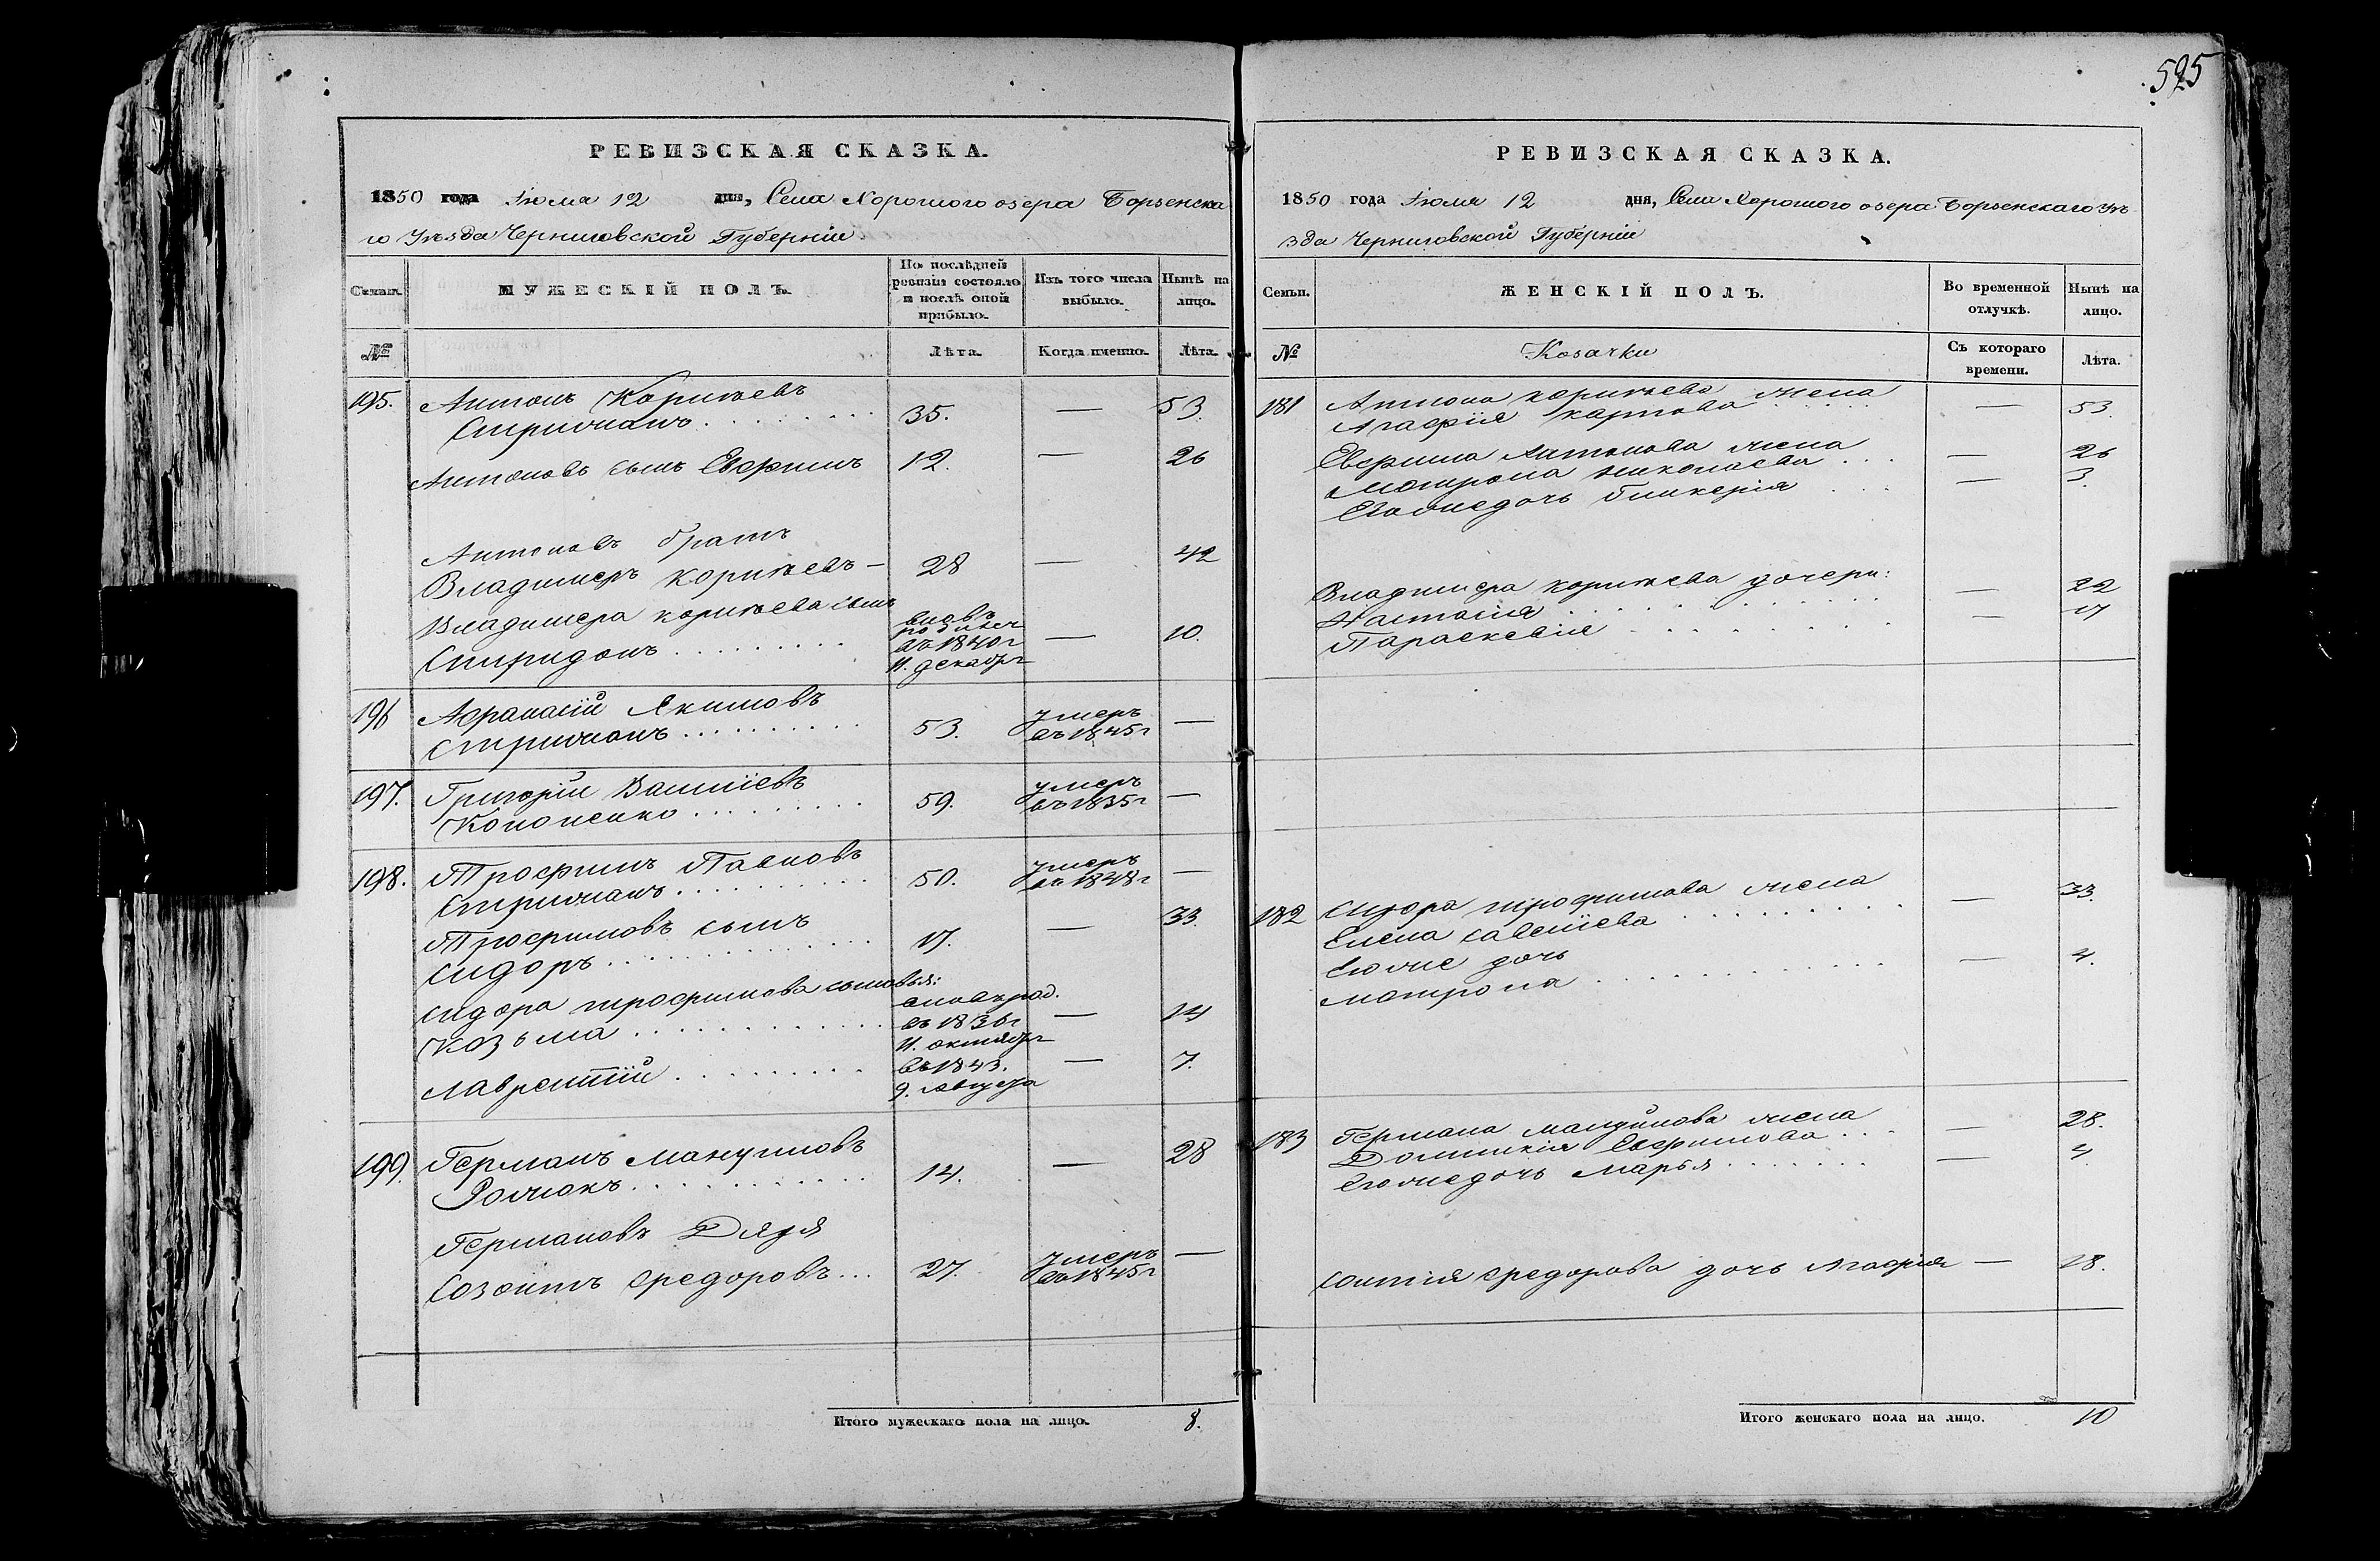 525
РЕВИЗСКАЯ СКАЗКА.
1850 года Іюля 12 дня, Села Хорошого озера Борзенска
го Уѣзда Черниговской Губерніи
Семьи.
МУЖЕСКІЙ ПОЛЪ.
По послѣдней
ревизіи состояло
и послѣ оной
прибыло.
Изъ того числа
выбыло.
Нынѣ на
лицо.
№
Лѣта.
Когда именно.
Лѣта.
195. Антонъ Корнѣевъ
Стрижакъ 35. — 53.
Антоновъ сынъ Евфимъ 12. — 26
Антоновъ братъ
Владимеръ Корнѣевъ — 28 — 42
Владимера корнѣева сынъ
Спиридонъ вновь
рожден
въ 1840 г
11. декабря — 10.
196 Афанасій Якимовъ
Стрижакъ 53. умеръ
въ 1845 г —
197. Григорій
Кононенко 59. умеръ
въ 1835 г —
198. Трофимъ Павловъ
Стрижакъ 50. умеръ
въ 1848 г —
Трофимовъ сынъ
Сидоръ 17. — 33.
Сидора трофимова сыновья:
Козьма вновь род.
въ 1836 г
11. октября — 14
Лаврентій въ 1843.
9. августа — 7.
199. Германъ
Рожокъ 14. — 28
Германовъ Дядя
Созонтъ Федоровъ 27. Умеръ
въ 1845 г —
Итого мужескаго пола на лицо. 8.
РЕВИЗСКАЯ СКАЗКА.
1850 года Іюля 12 дня, Села Хорошого озера Борзенскаго Уѣ
зда Черниговской Губерніи
Семьи.
ЖЕНСКІЙ ПОЛЪ.
Во временной
отлучкѣ.
Нынѣ на
лицо.
№
Козачки
Съ котораго
времени.
Лѣта.
181 Антона корнѣева жена
Агафія карпова — 53.
Евфима Антонова жена
Матрона николаева — 26
Егоже дочь Гликерія — 3.
Владимера корнѣева дочери:
Настасія — 22
Параскевія — 17
182 Сидора трофимова жена
Елена савеліева — 33.
Егоже дочь
матрона — 4.
183 Германа жена
Домникія Евфимова — 28.
Егоже дочь Марья — 4.
федорова дочь Агафія — 18.
Итого женскаго пола на лицо. 10